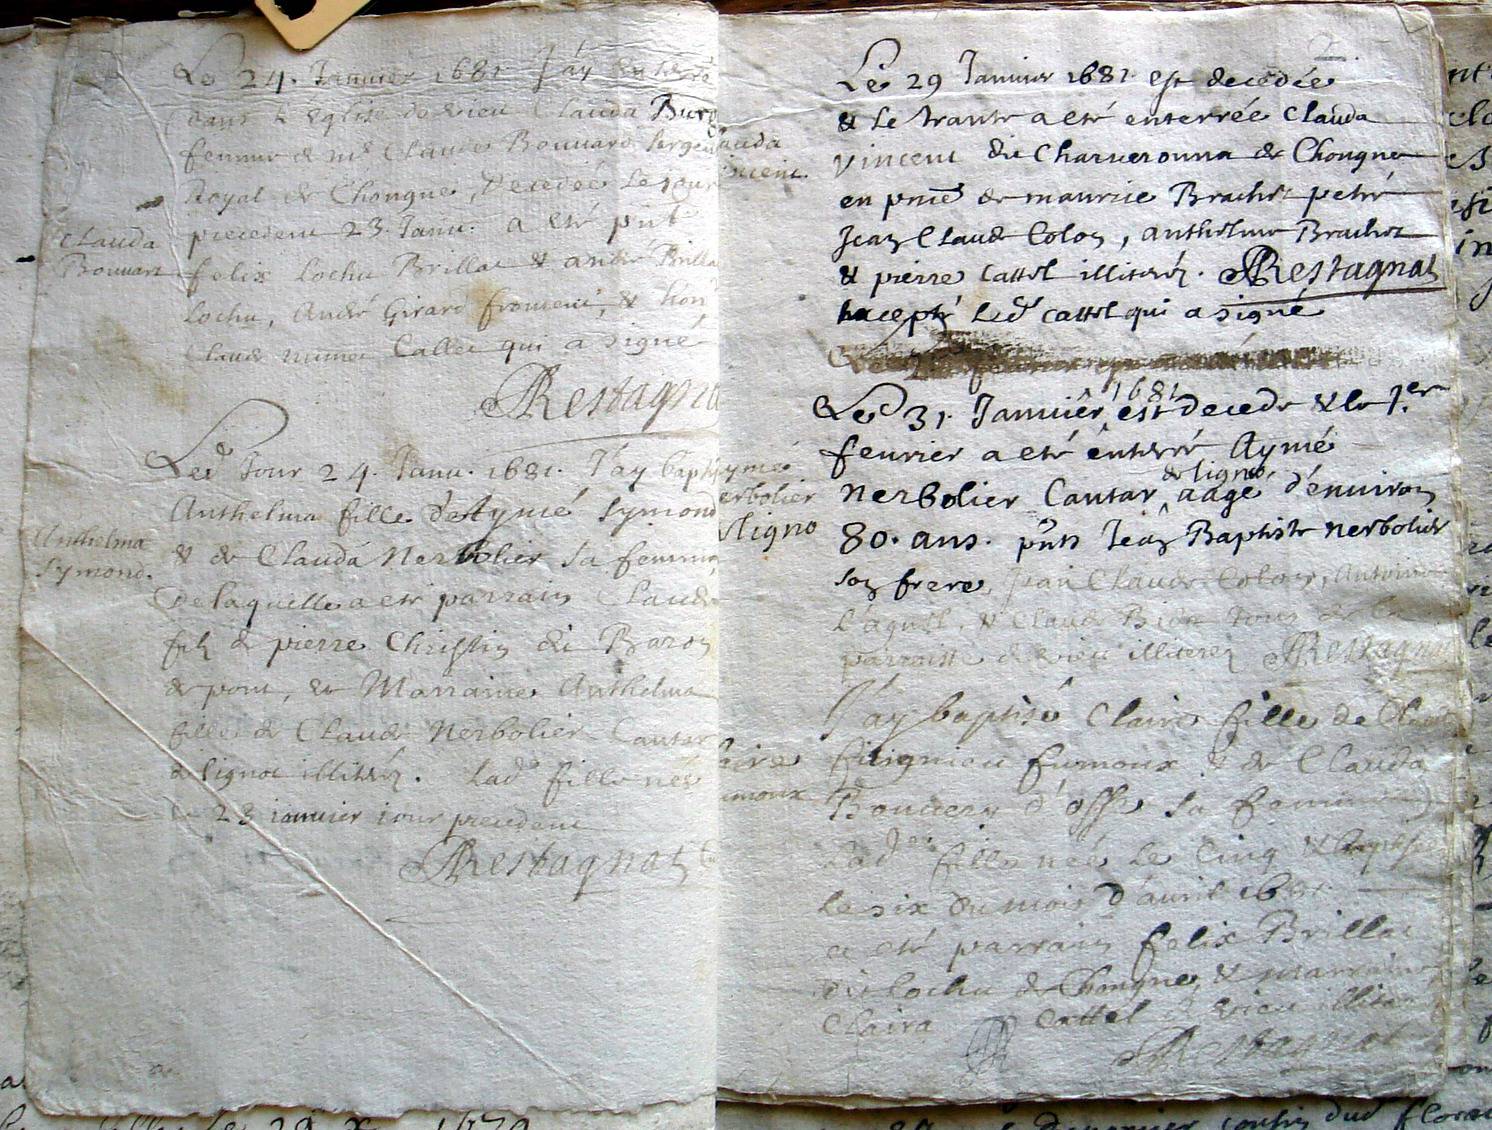 Le 24. Janvier 1681 J'ay enterré
dans l'Eglise de vieu Clauda Burd
femme de mr Claude Bonnard sergen
Royal de Chongne, decedée le jour
precedent 23. Janv. a eté pñt
Clauda
Bonnart
felix Lochu Brillat & andré Brilla
Lochu, André Girard froment, & hon
Claude Cattel qui a signé
Restagna
Led Jour 24. Janv. 1681. J'ay bapt
Anthelma fille d'Aymé Symond
Anthelma
Symond.
& de Clauda Nerbolier sa femme,
De laquelle a eté parrain Claude
filz de pierre Christin du Baron
de pont, et Marraine Anthelma
fille de Claude Nerbolier Cantar
de lignoc illiterez. Lad fille née
le 23 janvier jour precedent
Restagnat
Le 29 Janvier 1681 est decedée
& Le trante a eté enterrée Clauda
auda
incent.
Vincent du Charveronna de Chongne
en pñce de maurice Brachet petré
Jean Claude Colon, anthelme Brachet
& pierre Cattel illiterez. Restagnat
hacepté Led Cattel qui a signé
Le 31. Janvier 1681 est decede & le 1er
feurier a eté enterré Aymé
yme
erbolier
Ligno
Nerbolier Cantar de Ligno, aagé d'environ
80. ans. pñts Jean Baptiste Nerbolier
son frere, Jean Claude Colon, Antoine
L'aguil, & Claude Bion tous de la
parroisse de vieu illiterez Restagnat
J'ay baptisé Claire fille de Claude
aire
umoux
fumoux & de Clauda
d'Osse sa femme
Lad fille née Le Cinq & baptisée
Le six du mois d'avril 1681.
a eté parrain felix Brillat
du Lochu de Chongne, & marraine
Claira Cattel de vieu illiterez
Restagnat